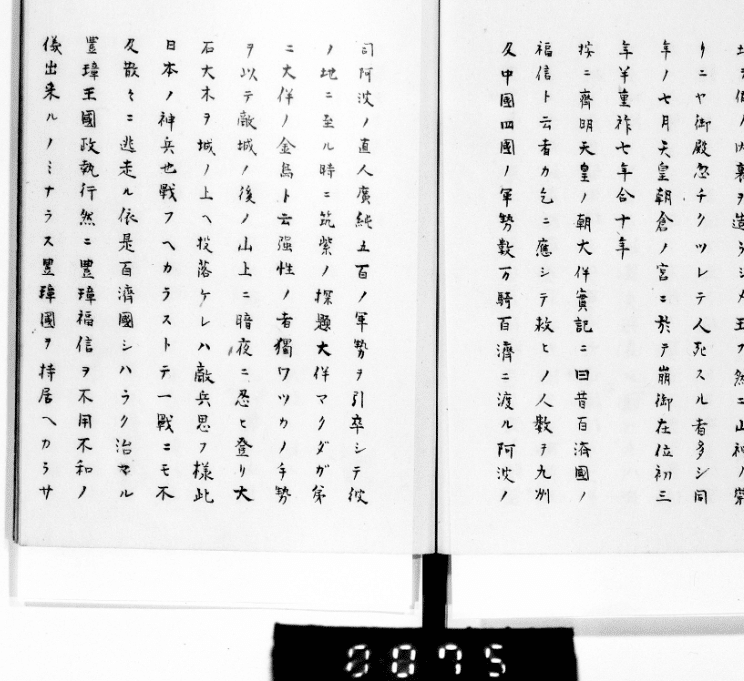 リニヤ御殿忽チクツレテ人死スル者多シ同
年ノ七月天皇朝倉ノ宮ニ於テ崩御在位初三
年羊重祚七年合十年
按ニ齊明天皇ノ朝大伴實記ニ曰昔百濟國ノ
福信ト云者カ乞ニ應シテ救ヒノ人数ヲ九州
及中國四國ノ軍勢数万騎百濟ニ渡ル阿波ノ
司阿波ノ直人廣純五百ノ軍勢ヲ引卒シテ彼
ノ地ニ至ル時ニ筑紫ノ探題大伴マクダガ弟
ニ大伴ノ金鳥ト云强性ノ者獨ワツカノ手勢
ヲ以テ敵城ノ後ノ山上ニ暗夜ニ忍ヒ登リ大
石大木ヲ城ノ上ヘ投落ケレハ敵兵思フ様此
日本ノ神兵也戰フヘカラストテ一戰ニモ不
及散々ニ逃走ル依是百濟國シハラク治マル
豊璋王國政執行然ニ豊璋福信ヲ不用不和ノ
儀出来ルノミナラス豊璋國ヲ持居ヘカラサ
0075